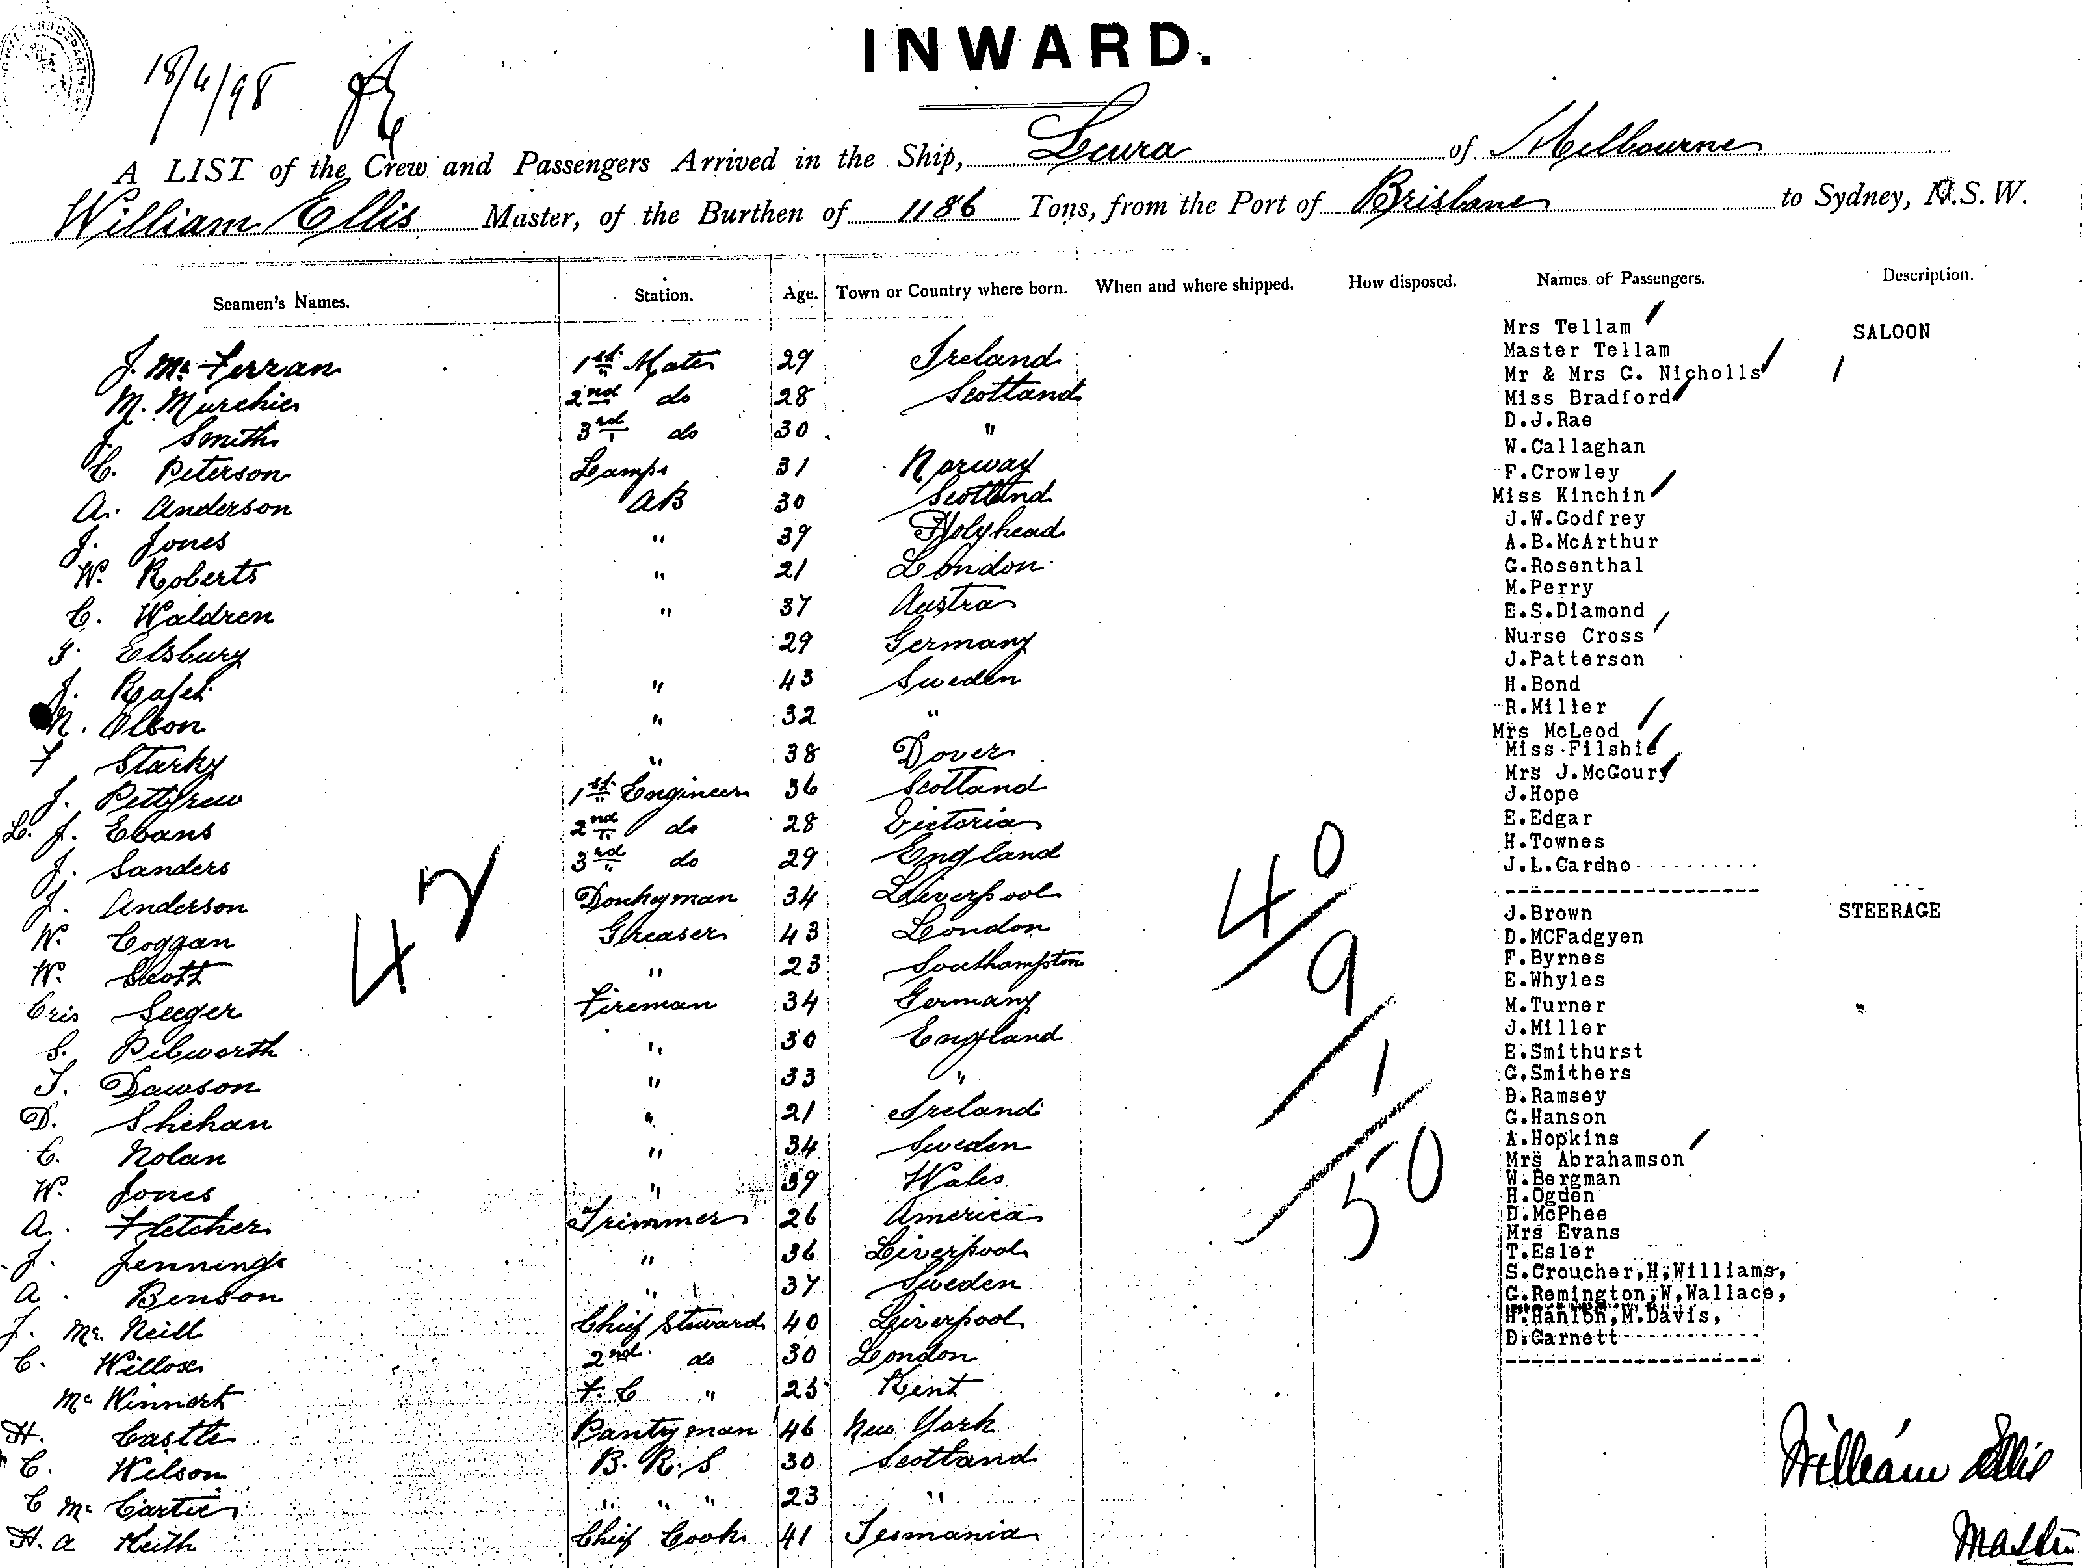 INWARD.
18/4/98
A LIST of the Crew and Passengers Arrived in the Ship, Leura of Melbourne
William Ellis Master, of the Burthen of 1186 Tons, from the Port of Brisbane to Sydney, N.S.W.
Seamen's Names. Station. Age. Town or Country where born. When and where shipped. How disposed. Names of Passengers. Description.
J. Mc Ferran 1st Mate 29 Ireland
M. Murchie 2nd do 28 Scotland
J. Smith 3rd do 30 "
C. Peterson Lamps 31 Norway
A. Anderson AB 30 Scotland
J. Jones " 39 Holyhead
W. Roberts " 21 London
C. Waldren " 37 Austra
J. Elsbury 29 Germany
J. Rafel " 43 Sweden
N. Olson " 32 "
F Starky " 38 Dover
J. Pettgrew 1st Engineer 36 Scotland
L. J. Evans 2nd do 28 Victoria
J. Sanders 3rd do 29 England
J. Anderson Donkeyman 34 Liverpool
W. Coggan Greaser 43 London
W. Scott " 23 Southampton
Cris Seeger Fireman 34 Germany
S. Pilworth " 30 England
T. Dawson " 33 "
D. Shehan " 21 Ireland
C. Nolan " 34 Sweden
W. Jones " 39 Wales
A. Fletcher Trimmer 26 America
J. Jennings " 36 Liverpool
A. Benson " 37 Sweden
J. Mc Neill Chief Steward 40 Liverpool
C. Willox 2nd do 30 London
Mc Kinnert F. C " 25 Kent
H. Castle Pantryman 46 New York
C. Wilson B. R. S 30 Scotland
C Mc Cartie " " " 23 "
H. A Keith Chief Cook 41 Tesmania
42
40
9
1
50
Mrs Tellam SALOON
Master Tellam
Mr & Mrs G. Nicholls
Miss Bradford
D.J.Rae
W.Callaghan
F.Crowley
Miss Kinchin
J.W.Godfrey
A.B.McArthur
G.Rosenthal
M.Perry
E.S.Diamond
Nurse Cross
J.Patterson
H.Bond
R.Miller
Mrs McLeod
Miss Filshie
Mrs J.McGoury
J.Hope
E.Edgar
H.Townes
J.L.Cardno
J.Brown STEERAGE
D.MCFadgyen
F.Byrnes
E.Whyles
M.Turner
J.Miller
E.Smithurst
G.Smithers
D.Ramsey
G.Hanson
A.Hopkins
Mrs Abrahamson
W.Bergman
H.Ogden
D.McPhee
Mrs Evans
T.Esler
S.Croucher,H.Williams,
G.Remington,W.Wallace,
H.Hanlon,M.Davis,
D.Garnett
William Ellis
Master